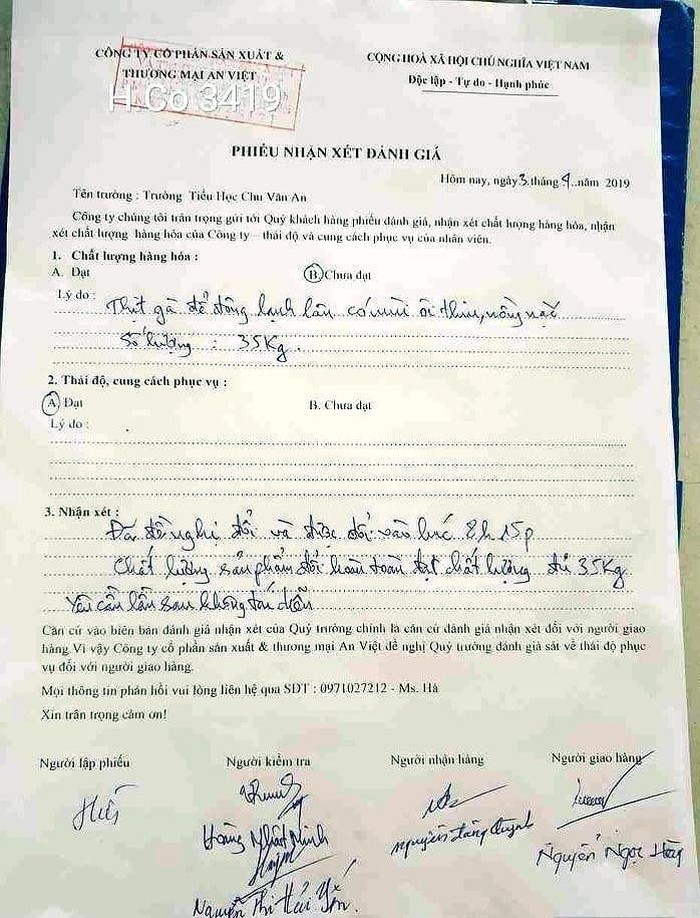 CÔNG TY CỔ PHẦN SẢN XUẤT &
THƯƠNG MẠI AN VIỆT
H.Co 3419
CỘNG HOÀ XÃ HỘI CHỦ NGHĨA VIỆT NAM
Độc lập - Tự do - Hạnh phúc
PHIẾU NHẬN XÉT ĐÁNH GIÁ
Hôm nay, ngày 3. tháng 4..năm 2019
Tên trường : Trường Tiểu Học Chu Văn An
Công ty chúng tôi trân trọng gửi tới Quý khách hàng phiếu đánh giá, nhận xét chất lượng hàng hóa, nhận
xét chất lượng hàng hóa của Công ty – thái độ và cung cách phục vụ của nhân viên.
1. Chất lượng hàng hóa :
A. Đạt B. Chưa đạt
Lý do : Thịt gà để đông lạnh lâu có mùi ôi thiu, nồng nặc
Số lượng : 35Kg.
2. Thái độ, cung cách phục vụ :
A Đạt B. Chưa đạt
Lý do :
3. Nhận xét :
Đã đề nghị đổi và được đổi vào lúc 8h 15p
Chất lượng sản phẩm đổi hoàn toàn đạt chất lượng đủ 35Kg
Yêu cầu lần sau không tái diễn
Căn cứ vào biên bản đánh giá nhận xét của Quý trường chính là căn cứ đánh giá nhận xét đối với người giao
hàng.Vì vậy Công ty cổ phần sản xuất & thương mại An Việt đề nghị Quý trường đánh giá sát về thái độ phục
vụ đối với người giao hàng.
Mọi thông tin phản hồi vui lòng liên hệ qua SDT : 0971027212 - Ms. Hà
Xin trân trọng cảm ơn!
Người lập phiếu Người kiểm tra Người nhận hàng Người giao hàng
Hoàng Nhật Minh
Nguyễn Ngọc
Nguyễn Thị Hải Yến.